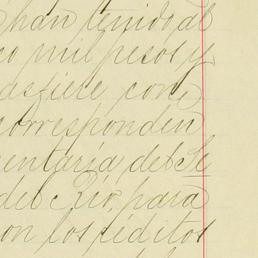 han tenido al
co mil pesos y
asfiere con
corresponden
entaría del Se
del Rio, para
on los réditos